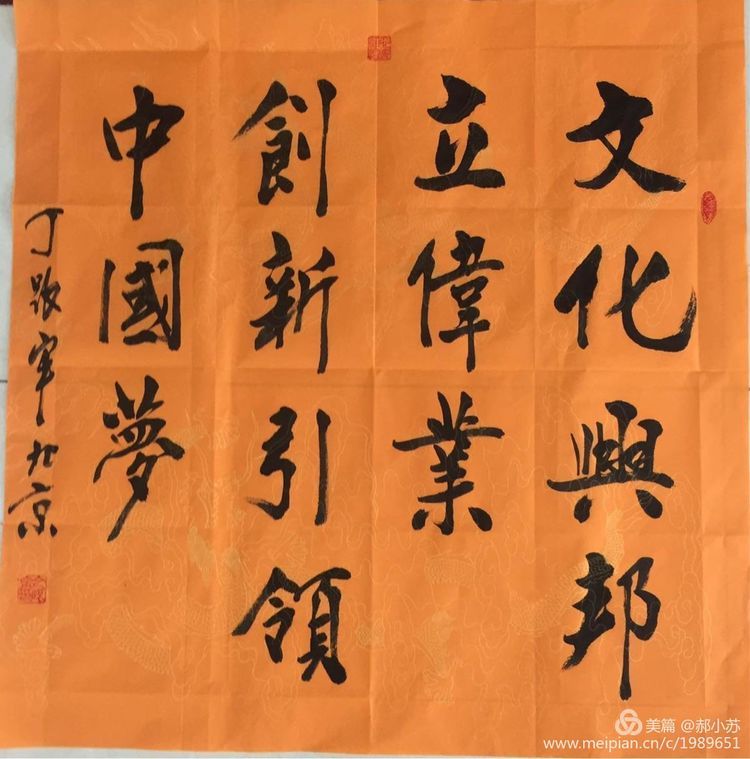 文化興邦
立偉業
創新引領
中國夢
丁
北京
美篇 @郝小苏
www.meipian.cn/c/1989651